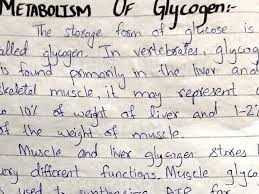 METABOLISM OF Glycogen:-
The storage form of glucose is
alled glycogen. In vertebrates, glycog
is found primarily in the liver and
skeletal muscle, it may represent
to 10% of weight of liver and 1-2%
of the weight of muscle.
Muscle and liver glycogen stores
very different functions. Muscle glyco
used to synthesize ATP for